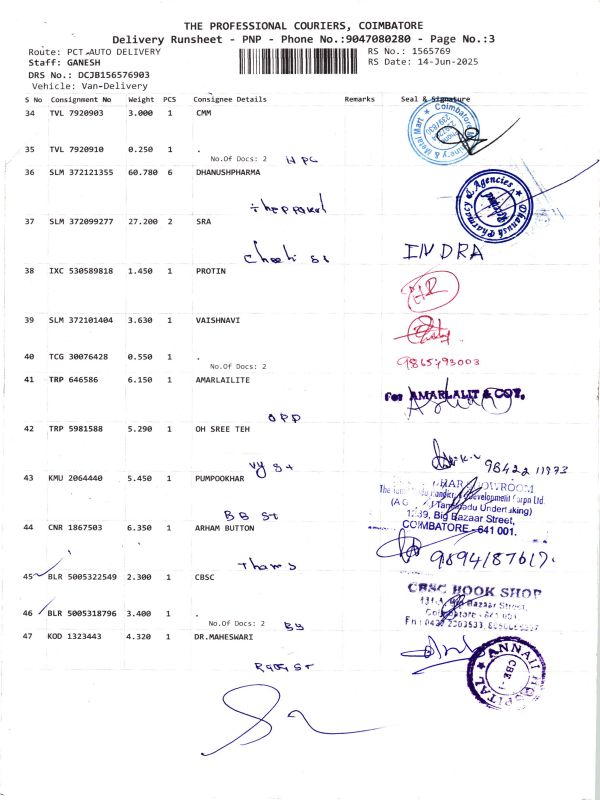 THE PROFESSIONAL COURIERS, COIMBATORE
Delivery Runsheet - PNP - Phone No.:9047080280 - Page No.:3
Route: PCT AUTO DELIVERY
RS No.: 1565769
Staff: GANESH
RS Date: 14-Jun-2025
DRS No.: DCJB156576903
Vehicle: Van-Delivery
S No Consignment No Weight PCS Consignee Details Remarks Seal & Signature
34 TVL 7920903 3.000 1 CMM
35 TVL 7920910 0.250 1 .
No.Of Docs: 2
36 SLM 372121355 60.780 6 DHANUSHPHARMA
Dhanush Pharmacy & Agencies
37 SLM 372099277 27.200 2 SRA
INDRA
38 IXC 530589818 1.450 1 PROTIN
39 SLM 372101404 3.630 1 VAISHNAVI
40 TCG 30076428 0.550 1 .
9865793003
No.Of Docs: 2
41 TRP 646586 6.150 1 AMARLAILITE
For AMARLALIT & COY.
OPP
42 TRP 5981588 5.290 1 OH SREE TEH
Vy St
43 KMU 2064440 5.450 1 PUMPOOKHAR
SHOWROOM
Development Corpn Ltd.
Undertaking)
Big Bazaar Street,
BB St
COIMBATORE - 641 001.
44 CNR 1867503 6.350 1 ARHAM BUTTON
Thams
45 BLR 5005322549 2.300 1 CBSC
CBSC BOOK SHOP
Bazaar Street,
46 BLR 5005318796 3.400 1 .
No.Of Docs: 2
47 KOD 1323443 4.320 1 DR.MAHESWARI
ANNAI HOSPITAL
CBE